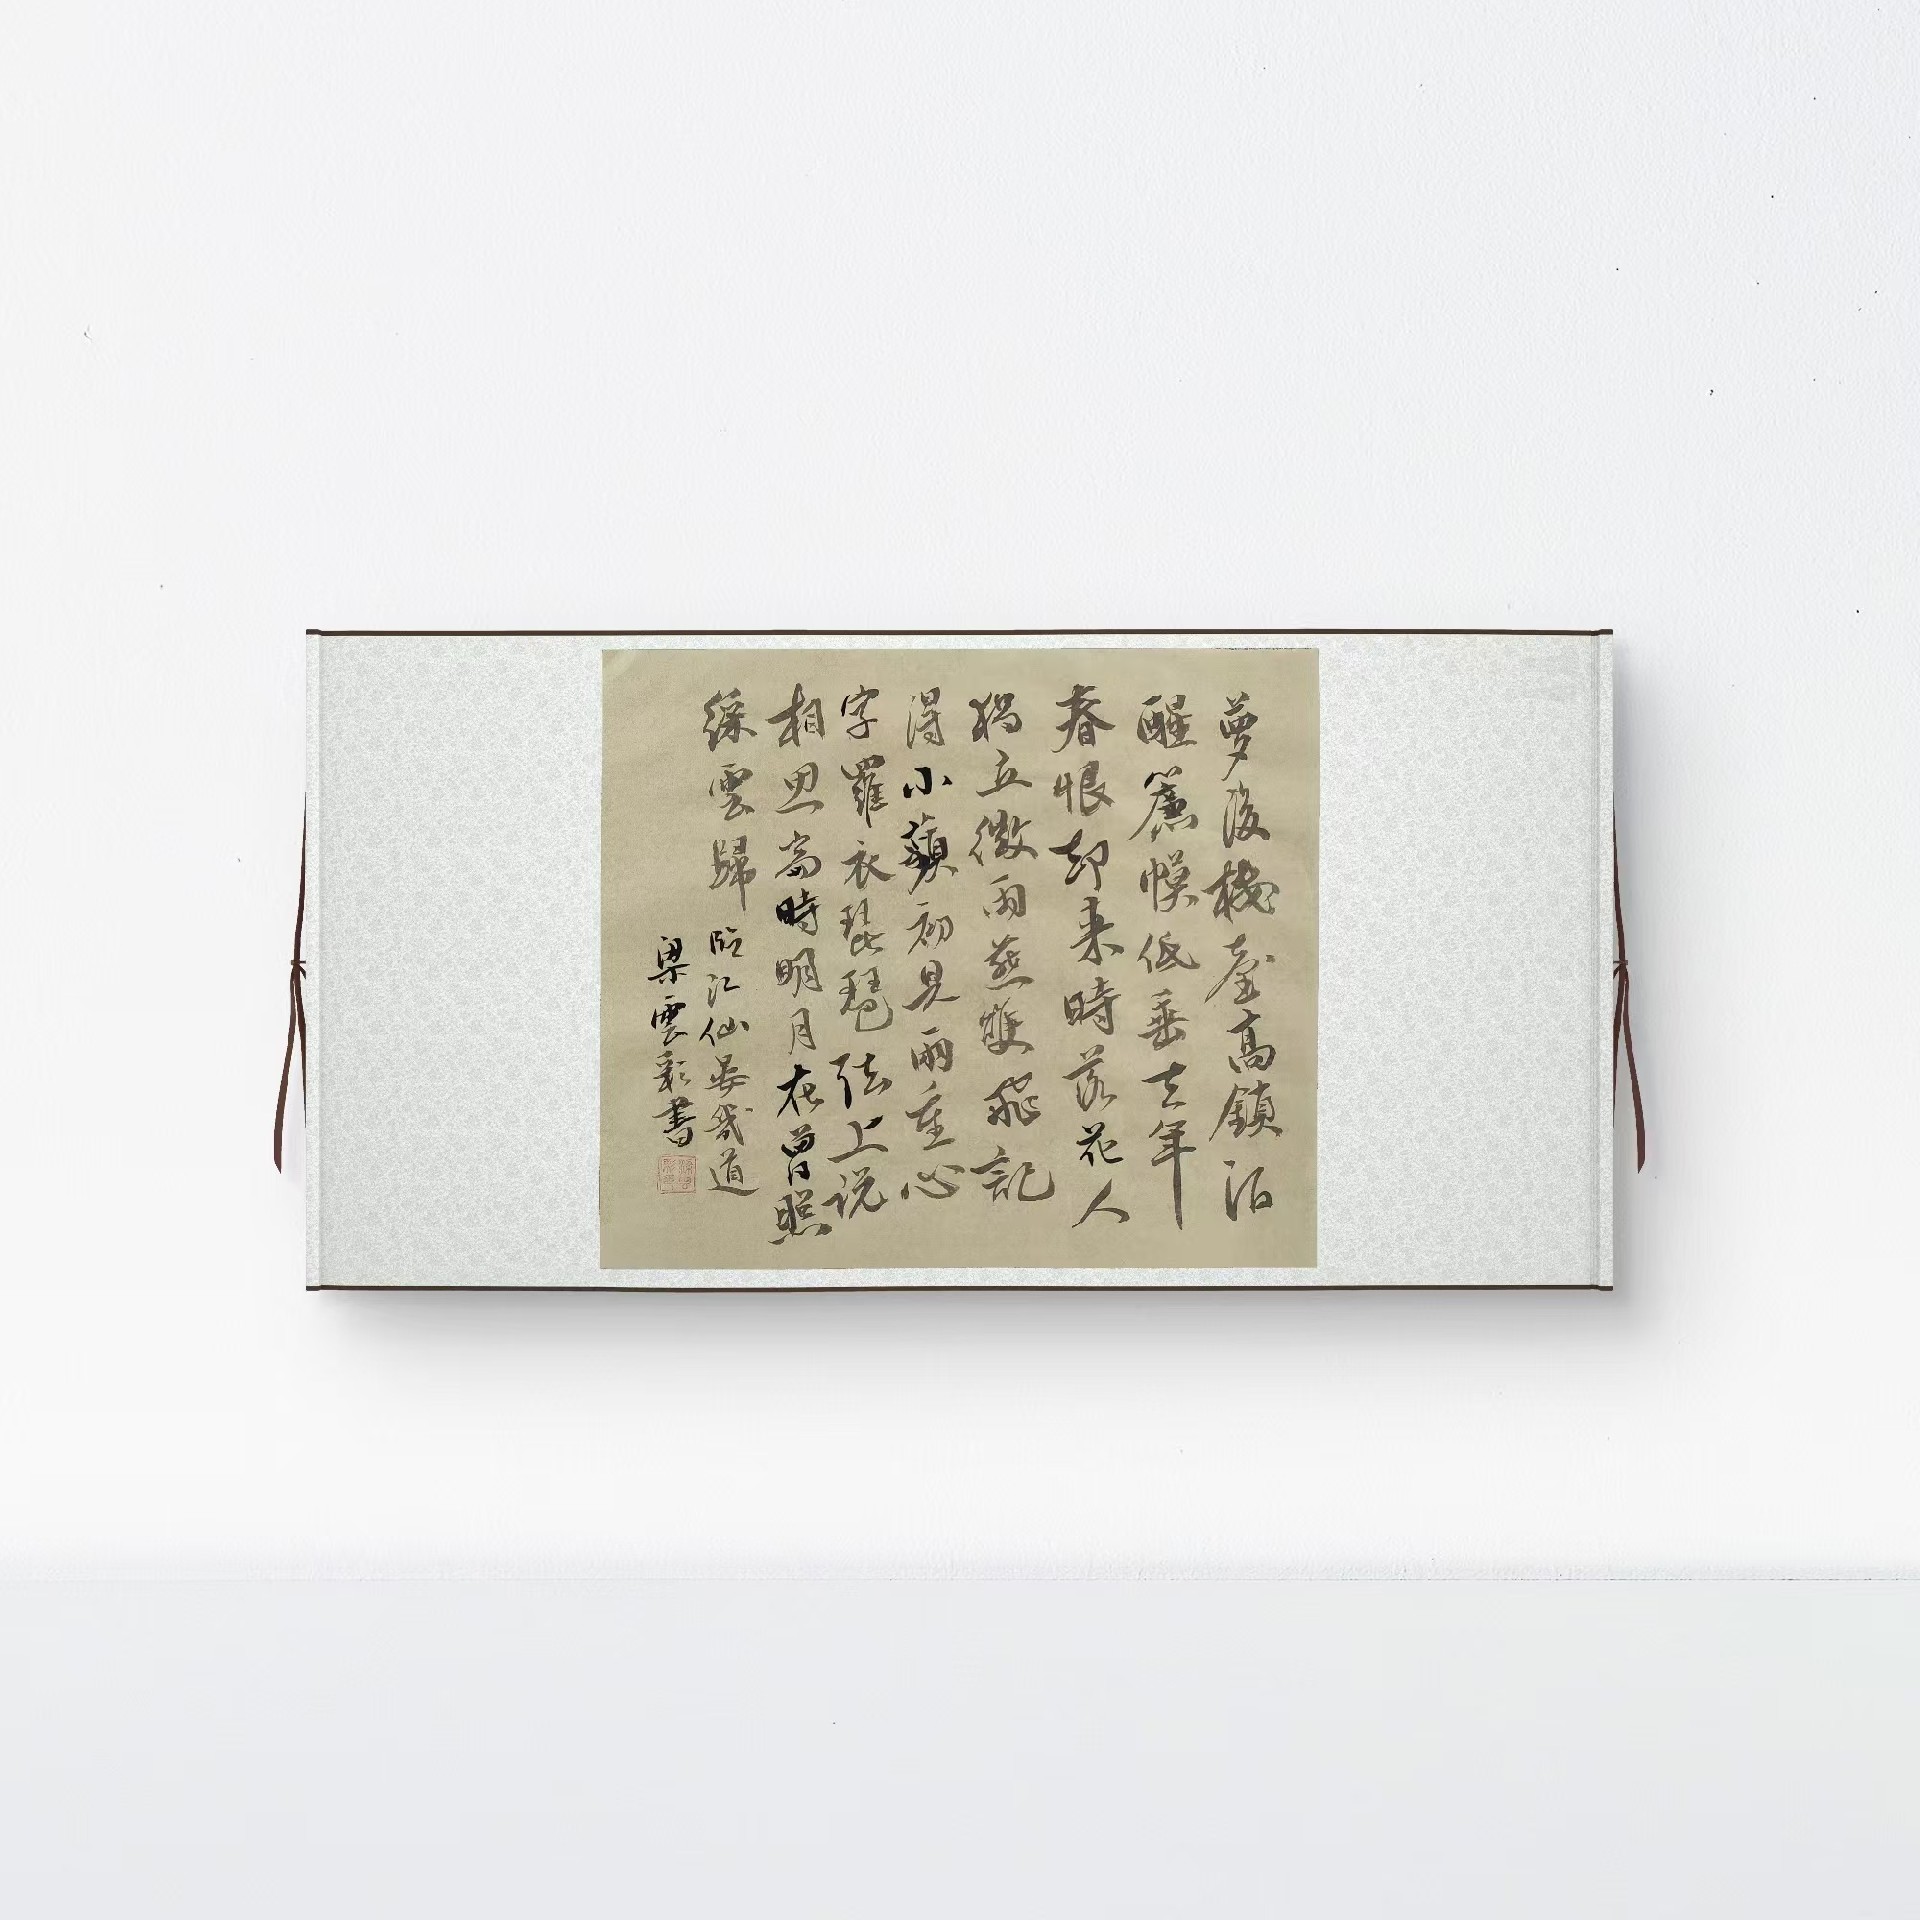 夢後樓臺高鎖酒
醒簾幙低垂去年
春恨却来時落花人
獨立微雨燕雙飛記
得小蘋初見兩重心
字羅衣琵琶弦上说
相思當時明月在曾照
綵雲歸 臨江仙晏幾道
梁雲彩書